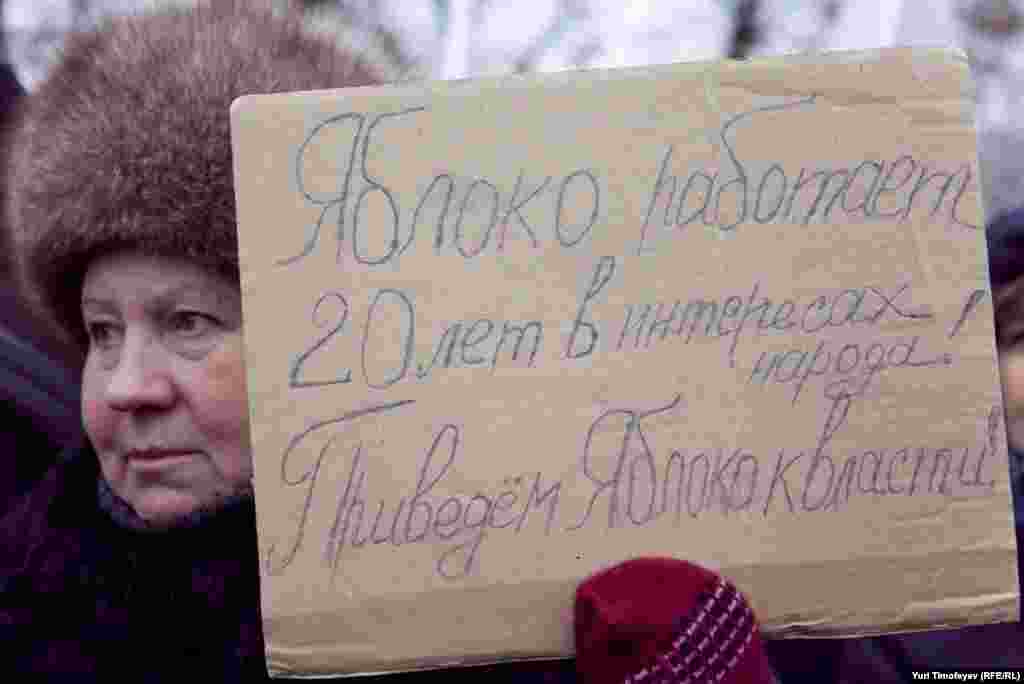 Яблоко работает
20 лет в интересах
народа!
Приведём Яблоко к власти!
Yuri Timofeyev (RFE/RL)